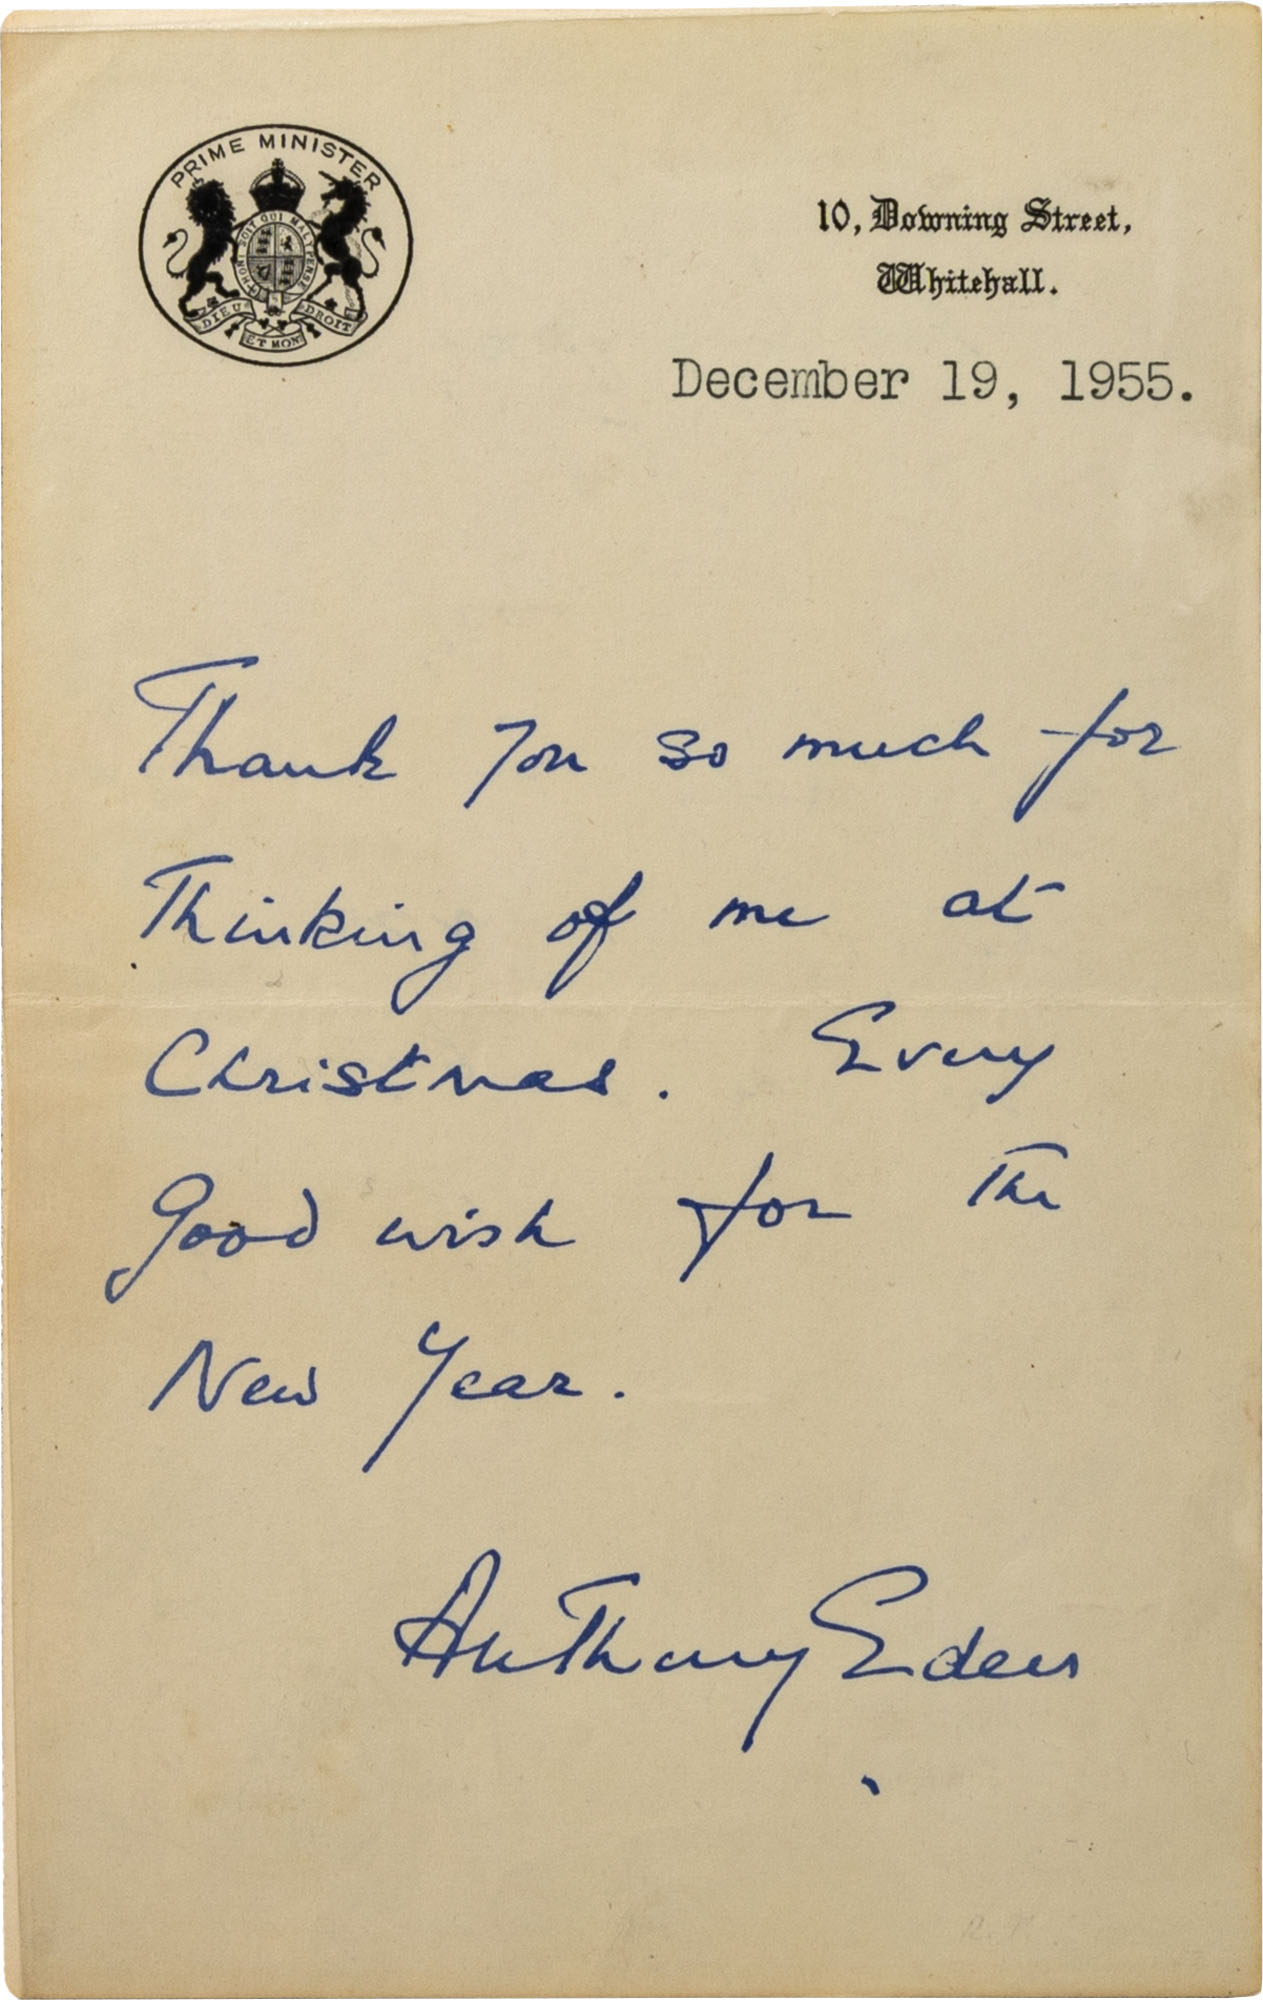 PRIME MINISTER
HONI SOIT QUI MAL Y PENSE
DIEU ET MON DROIT
10, Downing Street,
Whitehall.
December 19, 1955.
Thank you so much for
Thinking of me at
Christmas. Every
Good wish for the
New Year.
Anthony Eden